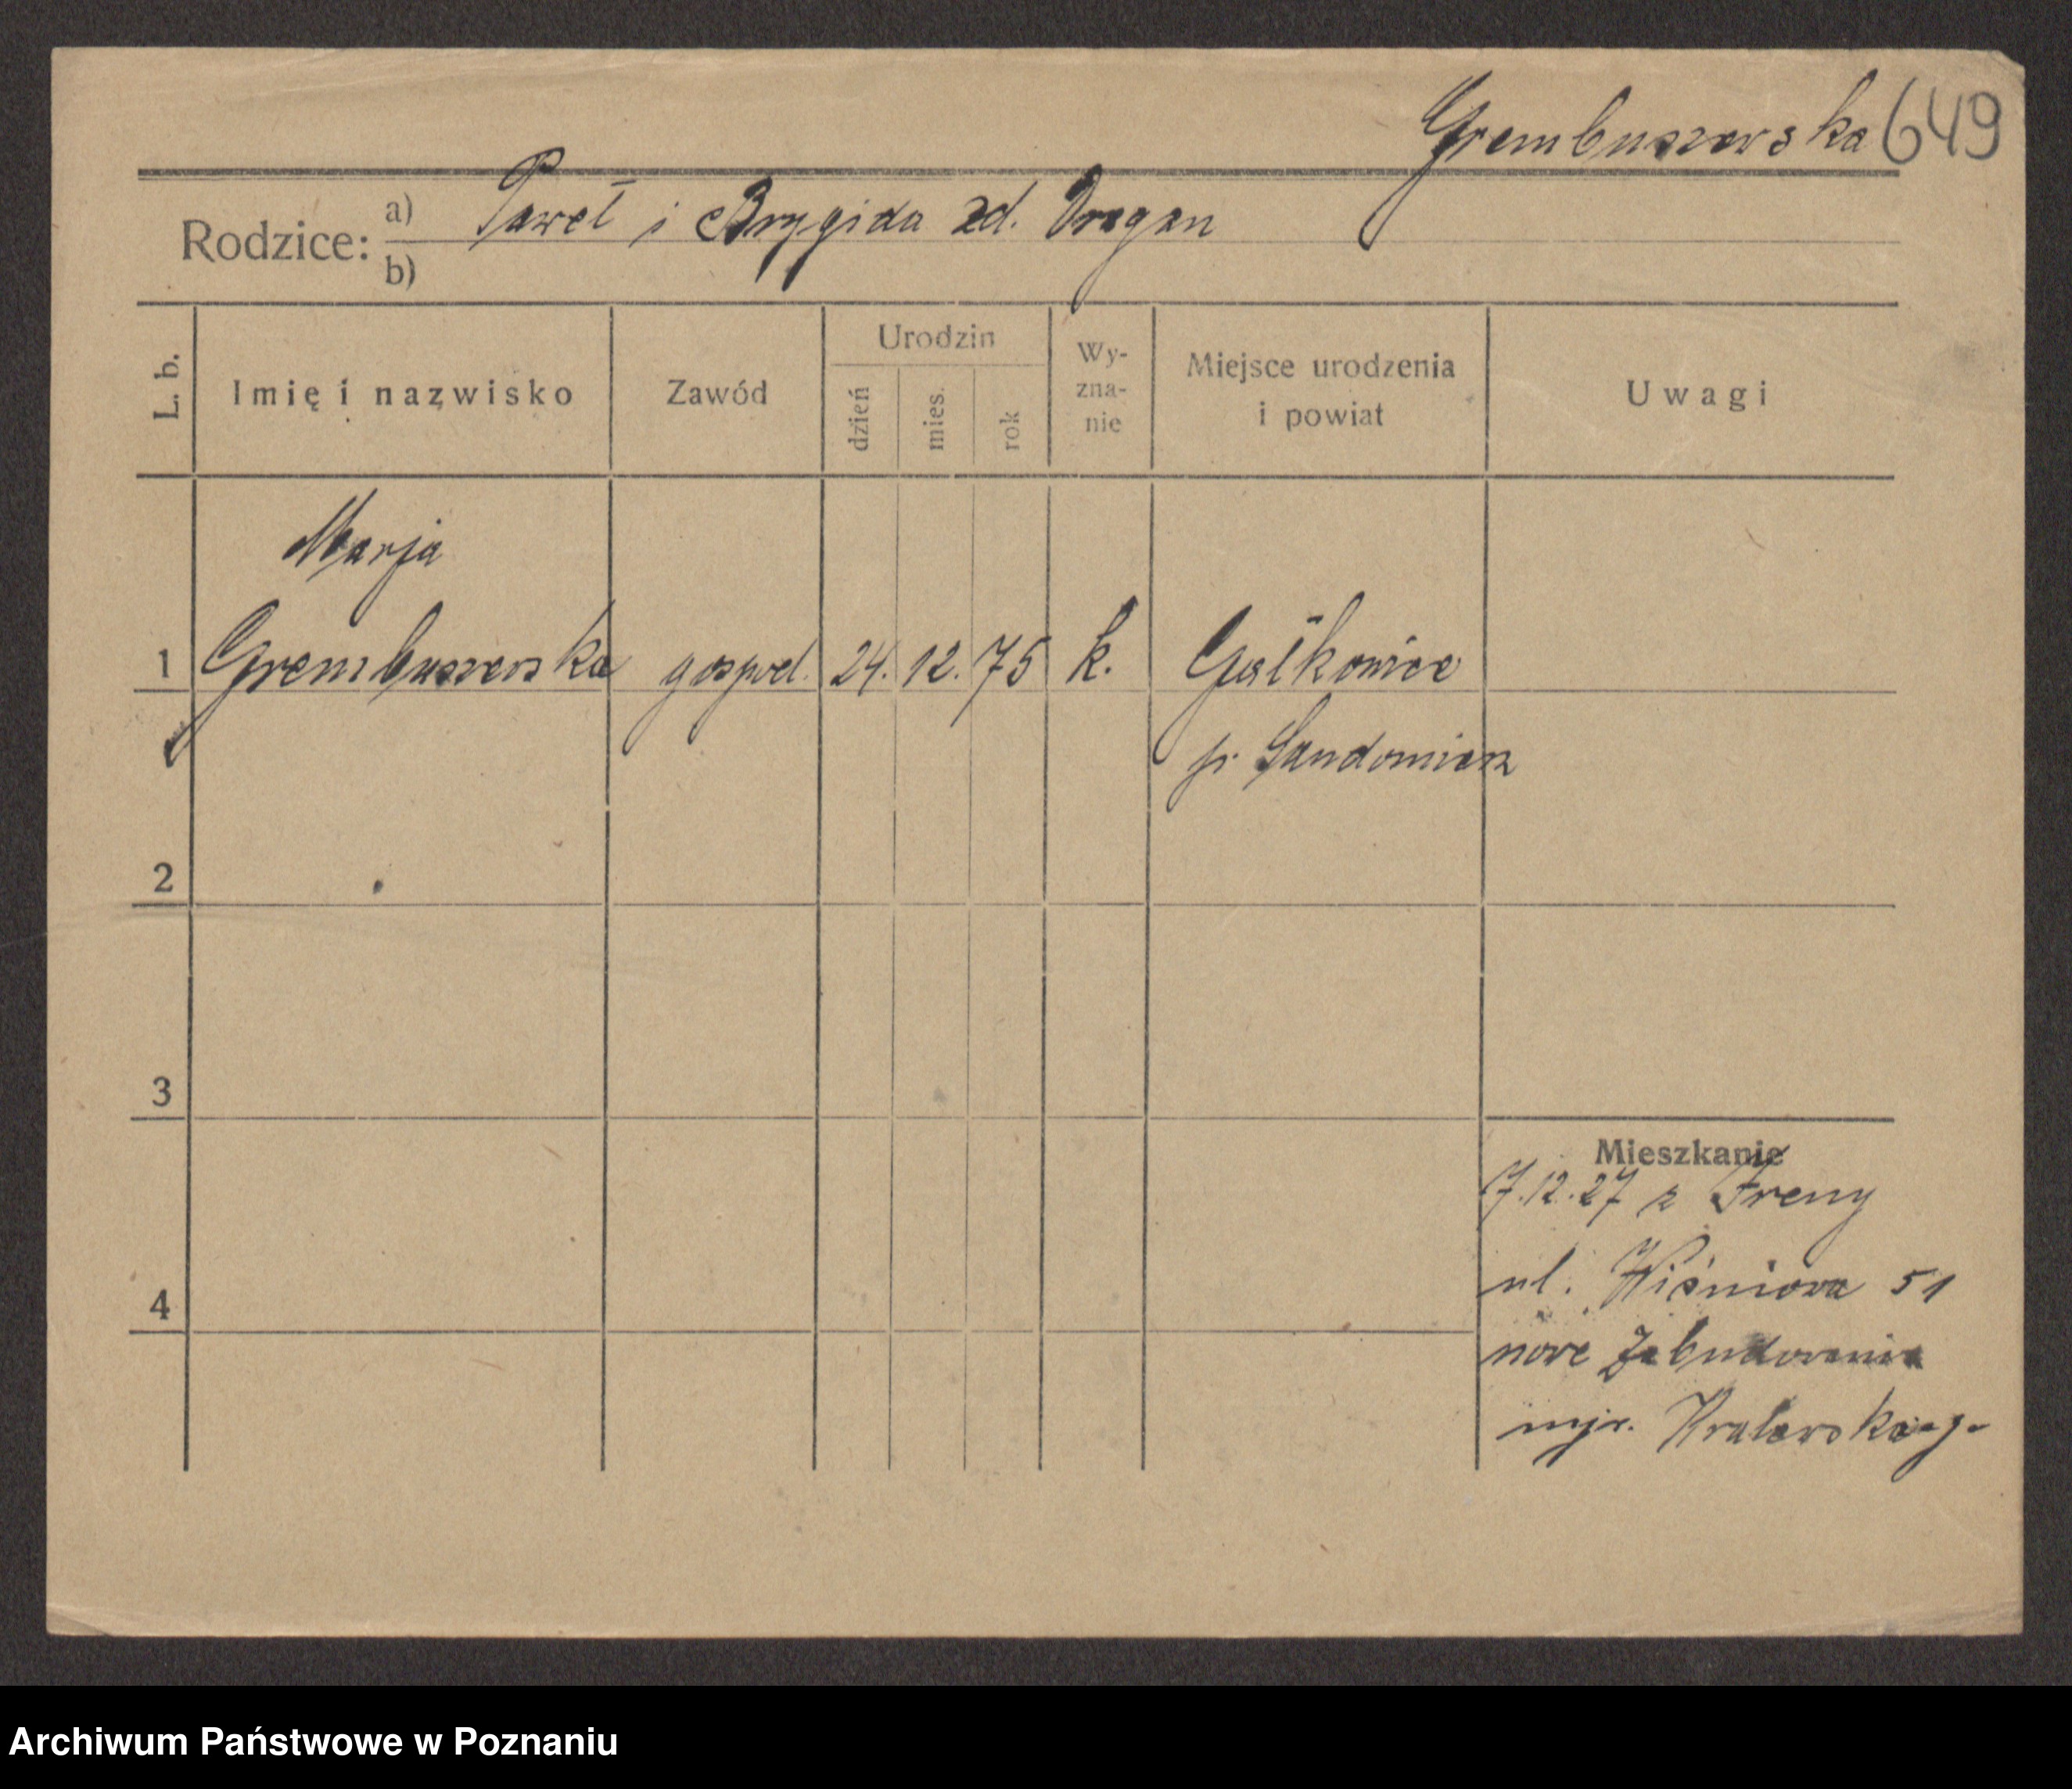 Grembuszewska 649
Rodzice: a) Paweł i Brygida zd. Dragan
b)
L. b. Imię i nazwisko Zawód Urodzin dzień mies. rok Wy-zna-nie Miejsce urodzenia i powiat Uwagi
Marja
1 Grembuszewska gospod. 24. 12. 75 k. Gałkowice
p. Sandomierz
2
3
Mieszkanie
7.12.27 z Ireny
4 ul. Wiśniowa 51
nowe Zabudowania
mjr.
Archiwum Państwowe w Poznaniu